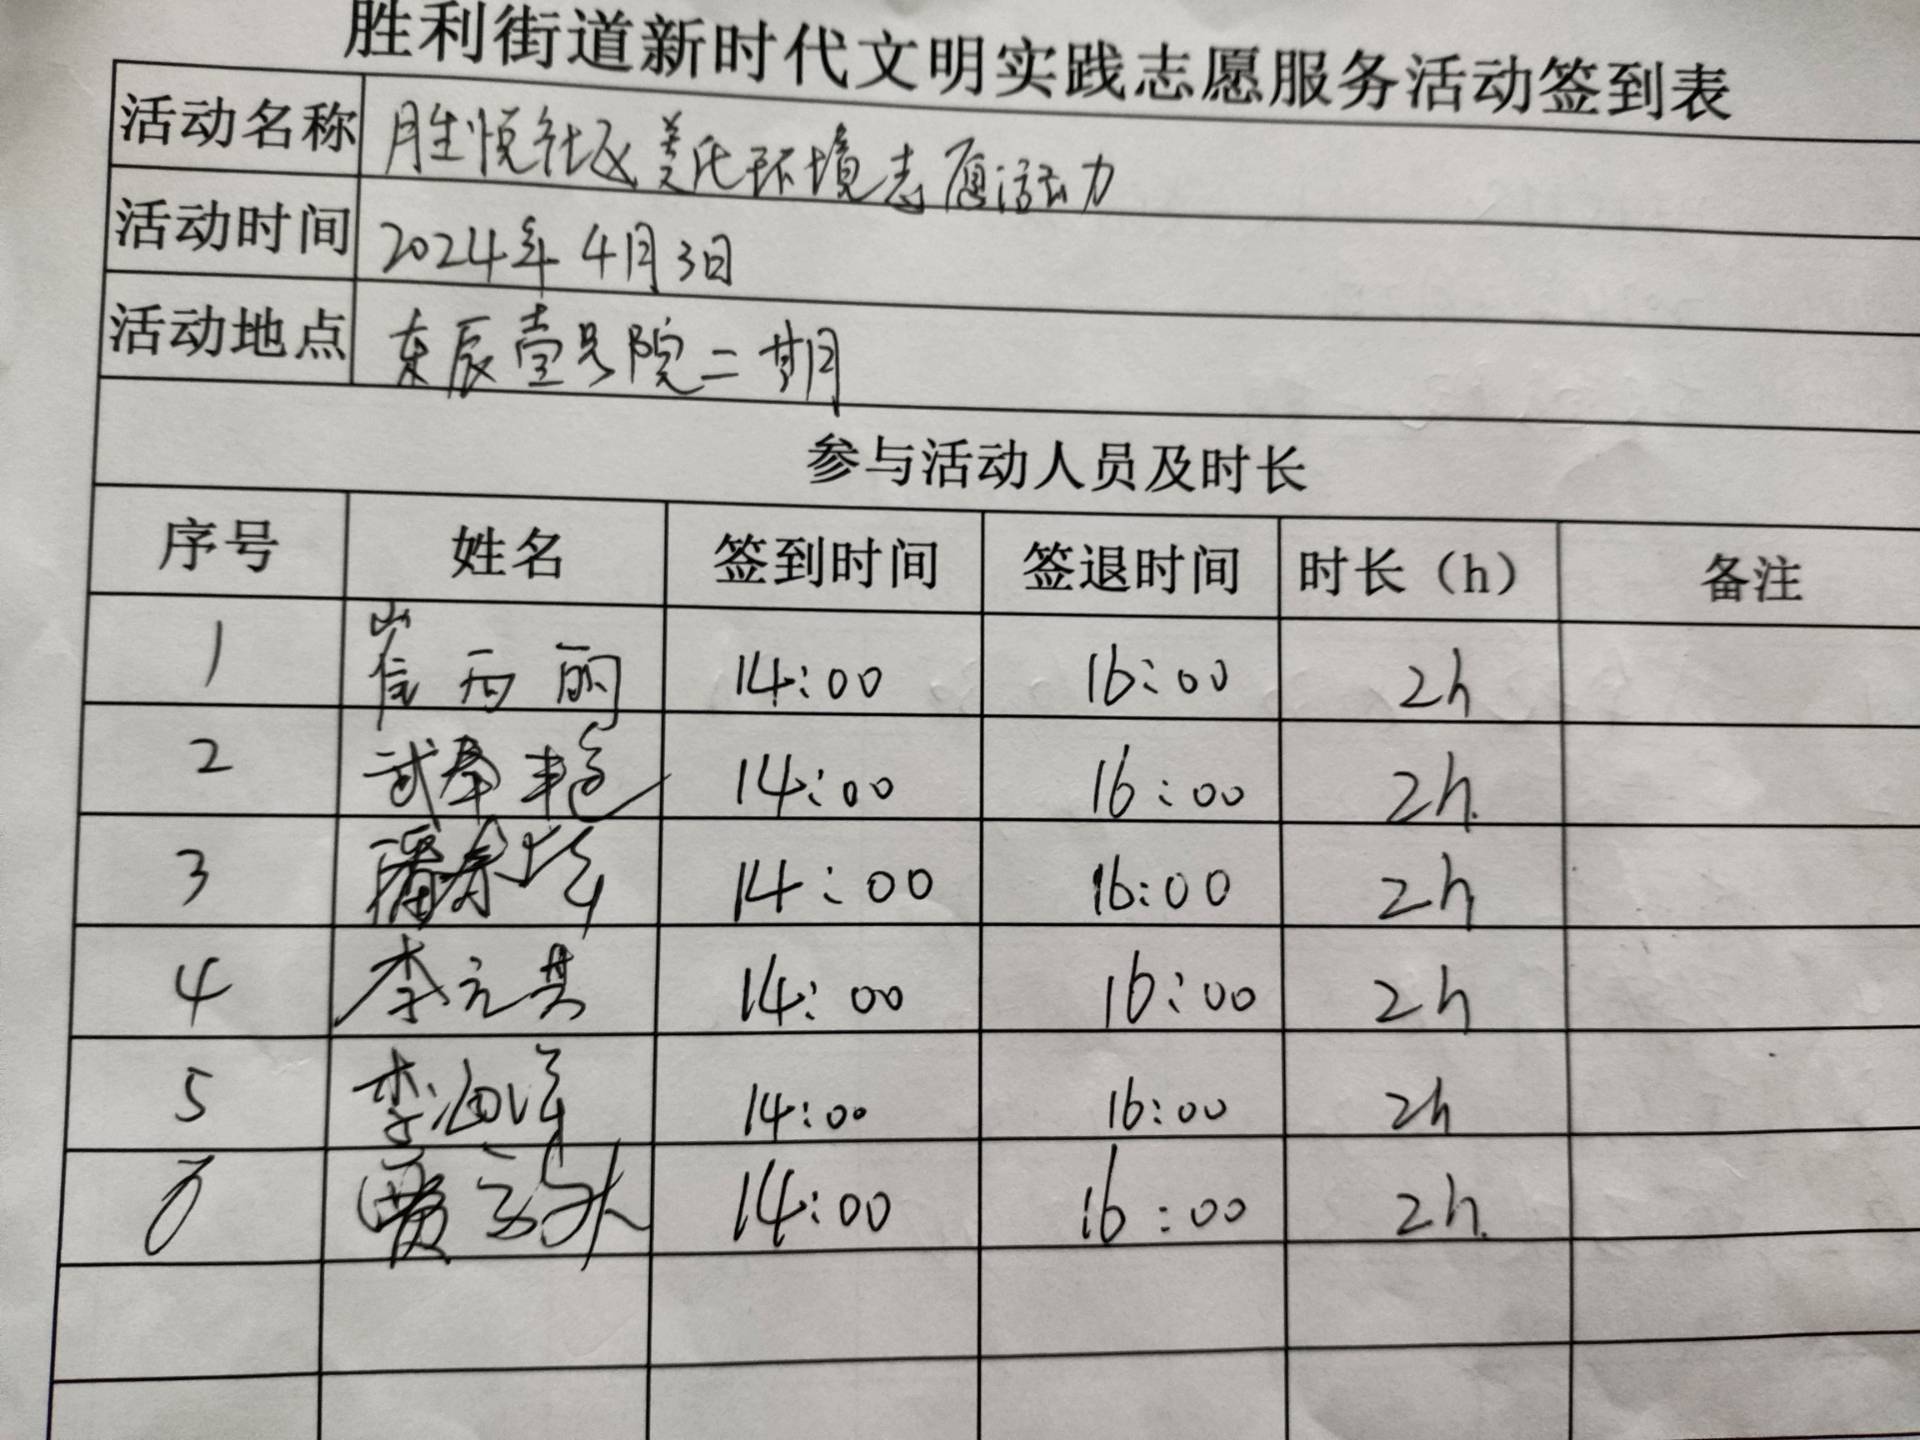 胜利街道新时代文明实践志愿服务活动签到表
活动名称 胜悦社区美化环境志愿活动
活动时间 2024年4月3日
活动地点 东辰壹号院二期
参与活动人员及时长
序号 姓名 签到时间 签退时间 时长（h） 备注
1 崔丽 14:00 16:00 2h
2 武春艳 14:00 16:00 2h.
3 潘 14:00 16:00 2h
4 李元其 14:00 16:00 2h
5 李 14:00 16:00 2h
6 贾 14:00 16:00 2h.